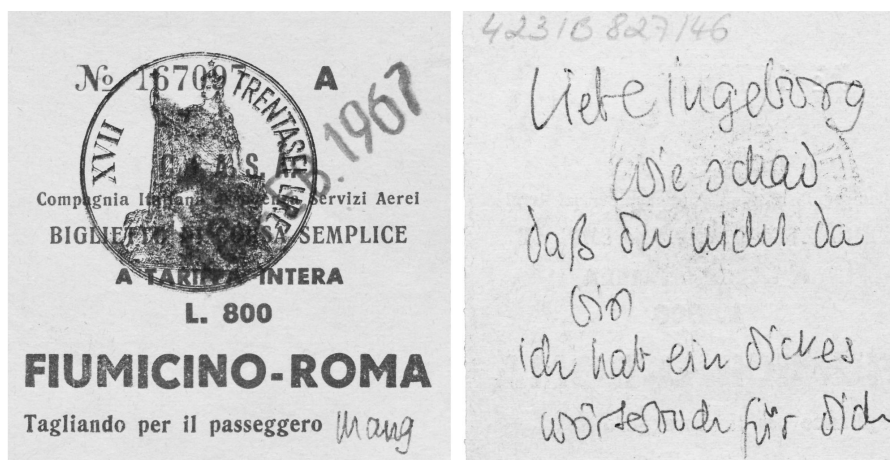 No 167097 A
XVII TRENTASEI LIRE
1967
Compagnia Servizi Aerei
BIGLIETTO DI CORSA SEMPLICE
A TARIFFA INTERA
L. 800
FIUMICINO-ROMA
Tagliando per il passeggero
4231B 827/46
liebe ingeborg
wie schad
daß du nicht da
bist
ich hab ein dickes
wörterbuch für dich